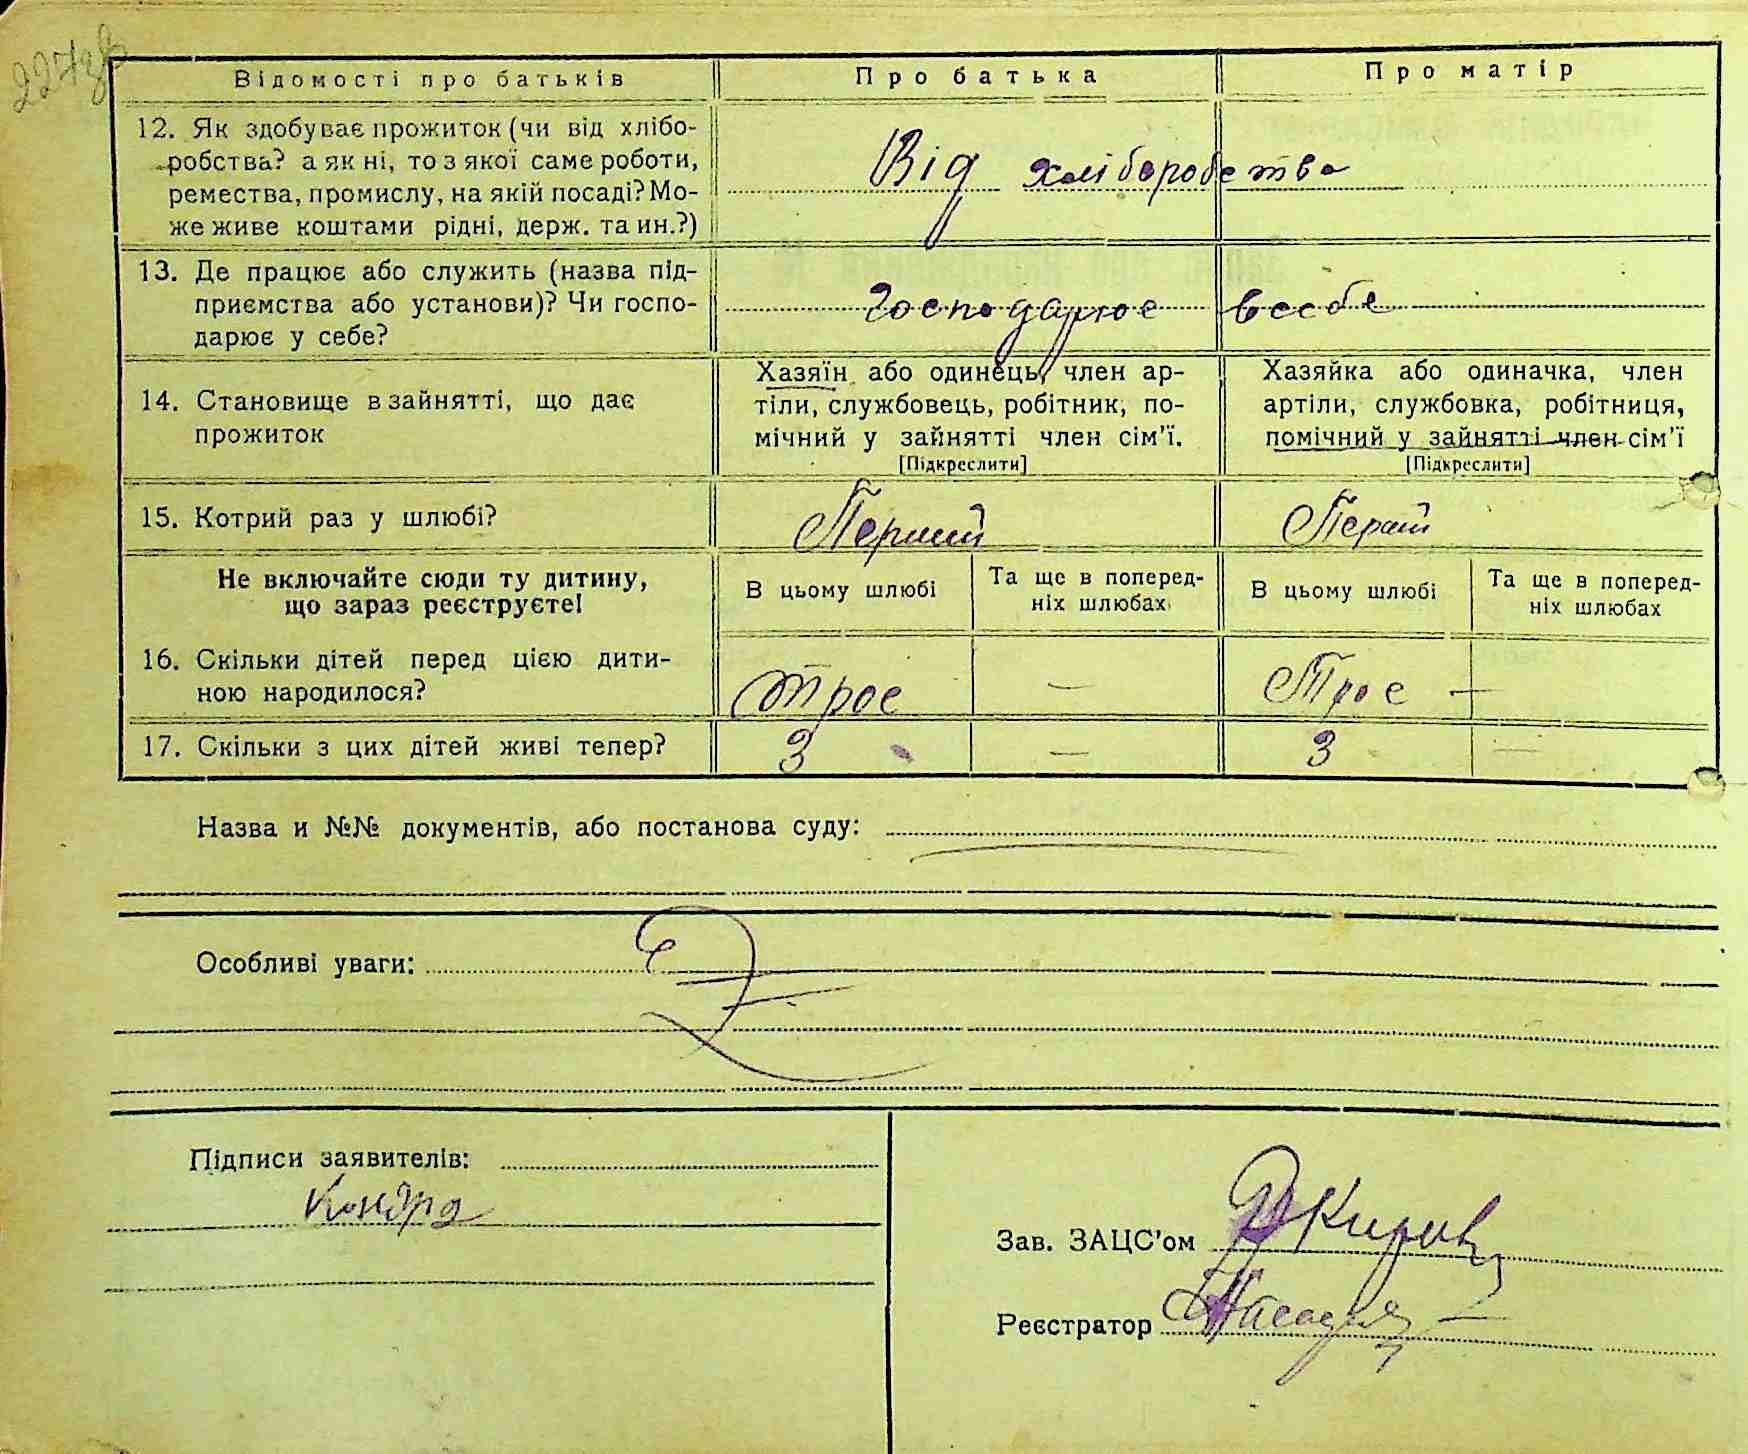 227зв
Відомості про батьків
Про батька
Про матір
12. Як здобуває прожиток (чи від хлібо-
робства? а як ні, то з якої саме роботи,
ремества, промислу, на якій посаді? Мо-
же живе коштами рідні, держ. та ин.?)
Від хліборобства
13. Де працює або служить (назва під-
приємства або установи)? Чи госпо-
дарює у себе?
Господарює всебе
14. Становище в зайнятті, що дає
прожиток
Хазяїн або одинець, член ар-
тіли, службовець, робітник, по-
мічний у зайнятті член сім'ї.
[Підкреслити]
Хазяйка або одиначка, член
артіли, службовка, робітниця,
помічний у зайнятті член сім'ї
[Підкреслити]
15. Котрий раз у шлюбі?
Перший
Перший
Не включайте сюди ту дитину,
що зараз реєструєте!
В цьому шлюбі
Та ще в поперед-
ніх шлюбах
В цьому шлюбі
Та ще в поперед-
ніх шлюбах
16. Скільки дітей перед цією дити-
ною народилося?
троє
—
Троє
—
17. Скільки з цих дітей живі тепер?
3
—
3
—
Назва и №№ документів, або постанова суду:
Особливі уваги:
Підписи заявителів:
Кондра
Зав. ЗАЦС'ом
Реєстратор